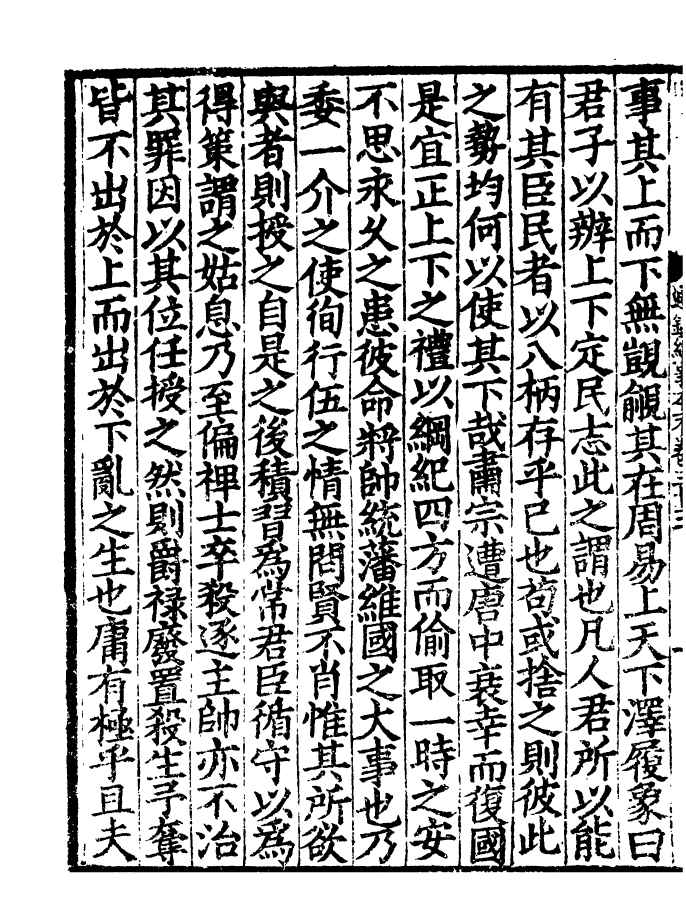 事其上而下無覬覦其在周易上天下澤履象曰
君子以辨上下定民志此之謂也凡人君所以能
有其臣民者以八柄存乎己也苟或捨之則彼此
之勢均何以使其下哉肅宗遭唐中衰幸而復國
是宜正上下之禮以綱紀四方而偷取一時之安
不思永久之患彼命將帥統藩維國之大事也乃
委一介之使徇行伍之情無問賢不肖惟其所欲
與者則授之自是之後積習為常君臣循守以為
得策謂之姑息乃至偏裨士卒殺逐主帥亦不治
其罪因以其位任授之然則爵祿廢置殺生予奪
皆不出於上而出於下亂之生也庸有極乎且夫